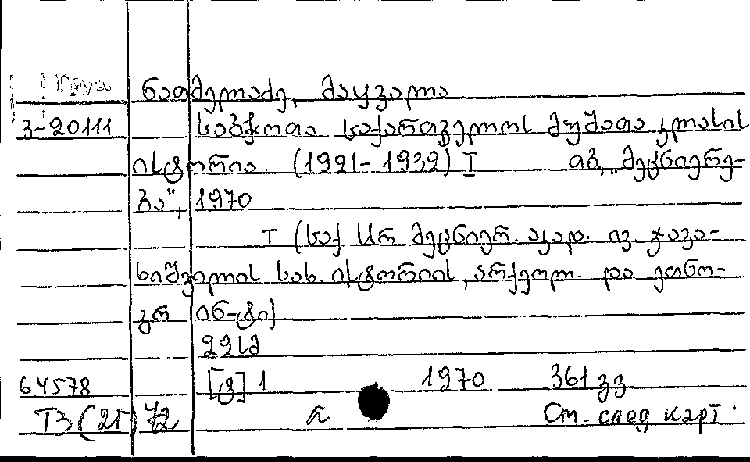 ნათმელაძე, მაყვალა
3-20111 საბჭოთა საქართველოს მუშათა კლასის
ისტორია (1921-1932) I თბ, მეცნიერე-
ბა", 1970
T (საქ სსრ მეცნიერ. აკად. ივ. ჯავა-
ხიშვილის სახ. ისტორიის, არქეოლ. და ეთნო-
გრ ინ-ტი)
22სმ
64578 1 1970 361 გვ
T3(2Г)72 к См. след карт.